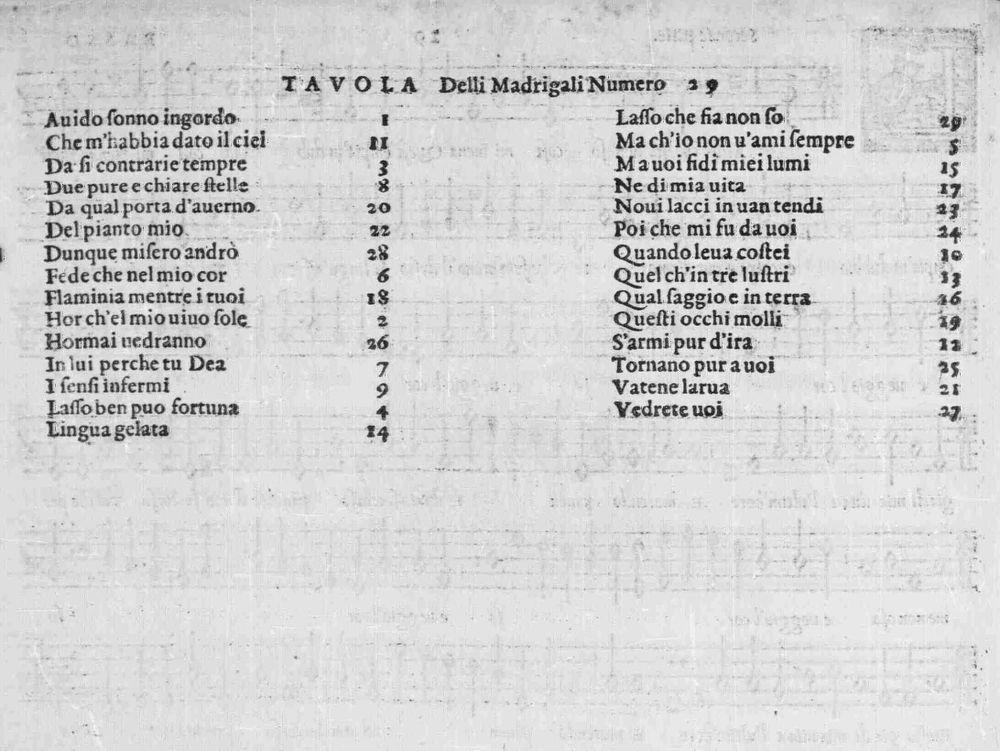 TAVOLA Delli Madrigali Numero 29
Auido ſonno ingordo 1
Che m'habbia dato il ciel 11
Da ſi contrarie tempre 3
Due pure e chiare ſtelle 8
Da qual porta d'auerno 20
Del pianto mio 22
Dunque miſero andrò 28
Fede che nel mio cor 6
Flaminia mentre i tuoi 18
Hor ch'el mio uiuo ſole 2
Hormai uedranno 26
In lui perche tu Dea 7
I ſenſi infermi 9
Laſſo ben puo fortuna 4
Lingua gelata 14
Laſſo che ſia non ſo 29
Ma ch'io non u'ami ſempre 5
Ma uoi fidi miei lumi 15
Ne di mia uita 17
Noui lacci in uan tendi 23
Poi che mi fu da uoi 24
Quando leua coſtei 10
Quel ch'in tre luſtri 13
Qual ſaggio e in terra 16
Queſti occhi molli 19
S'armi pur d'ira 12
Tornano pur a uoi 25
Vatene larua 21
Vedrete uoi 27